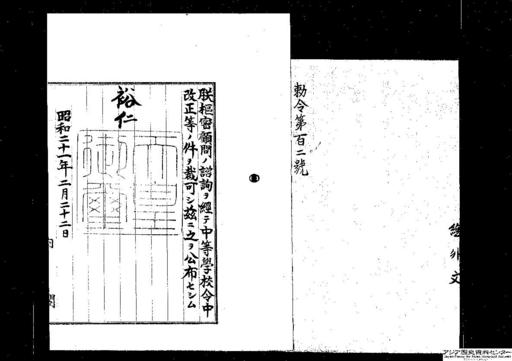 勅令第百二號
朕樞密顧問ノ諮詢ヲ經テ中等學校令中
改正等ノ件ヲ裁可シ茲ニ之ヲ公布セシム
裕仁
天皇御璽
昭和二十一年二月二十二日
内閣
アジア歴史資料センター